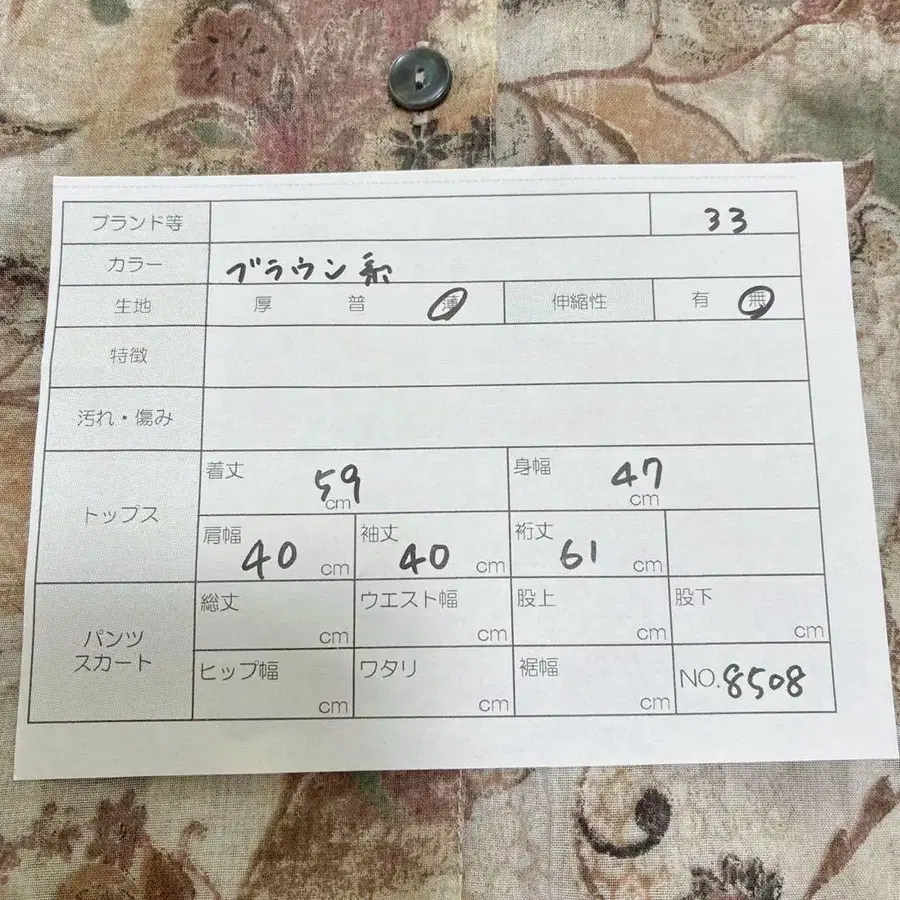 ブランド等 33
カラー ブラウン系
生地 厚 普 薄 伸縮性 有 無
特徴
汚れ・傷み
トップス 着丈 59 cm 身幅 47 cm
肩幅 40 cm 袖丈 40 cm 裄丈 61 cm
パンツ スカート 総丈 cm ウエスト幅 cm 股上 cm 股下 cm
ヒップ幅 cm ワタリ cm 裾幅 cm NO. 8508